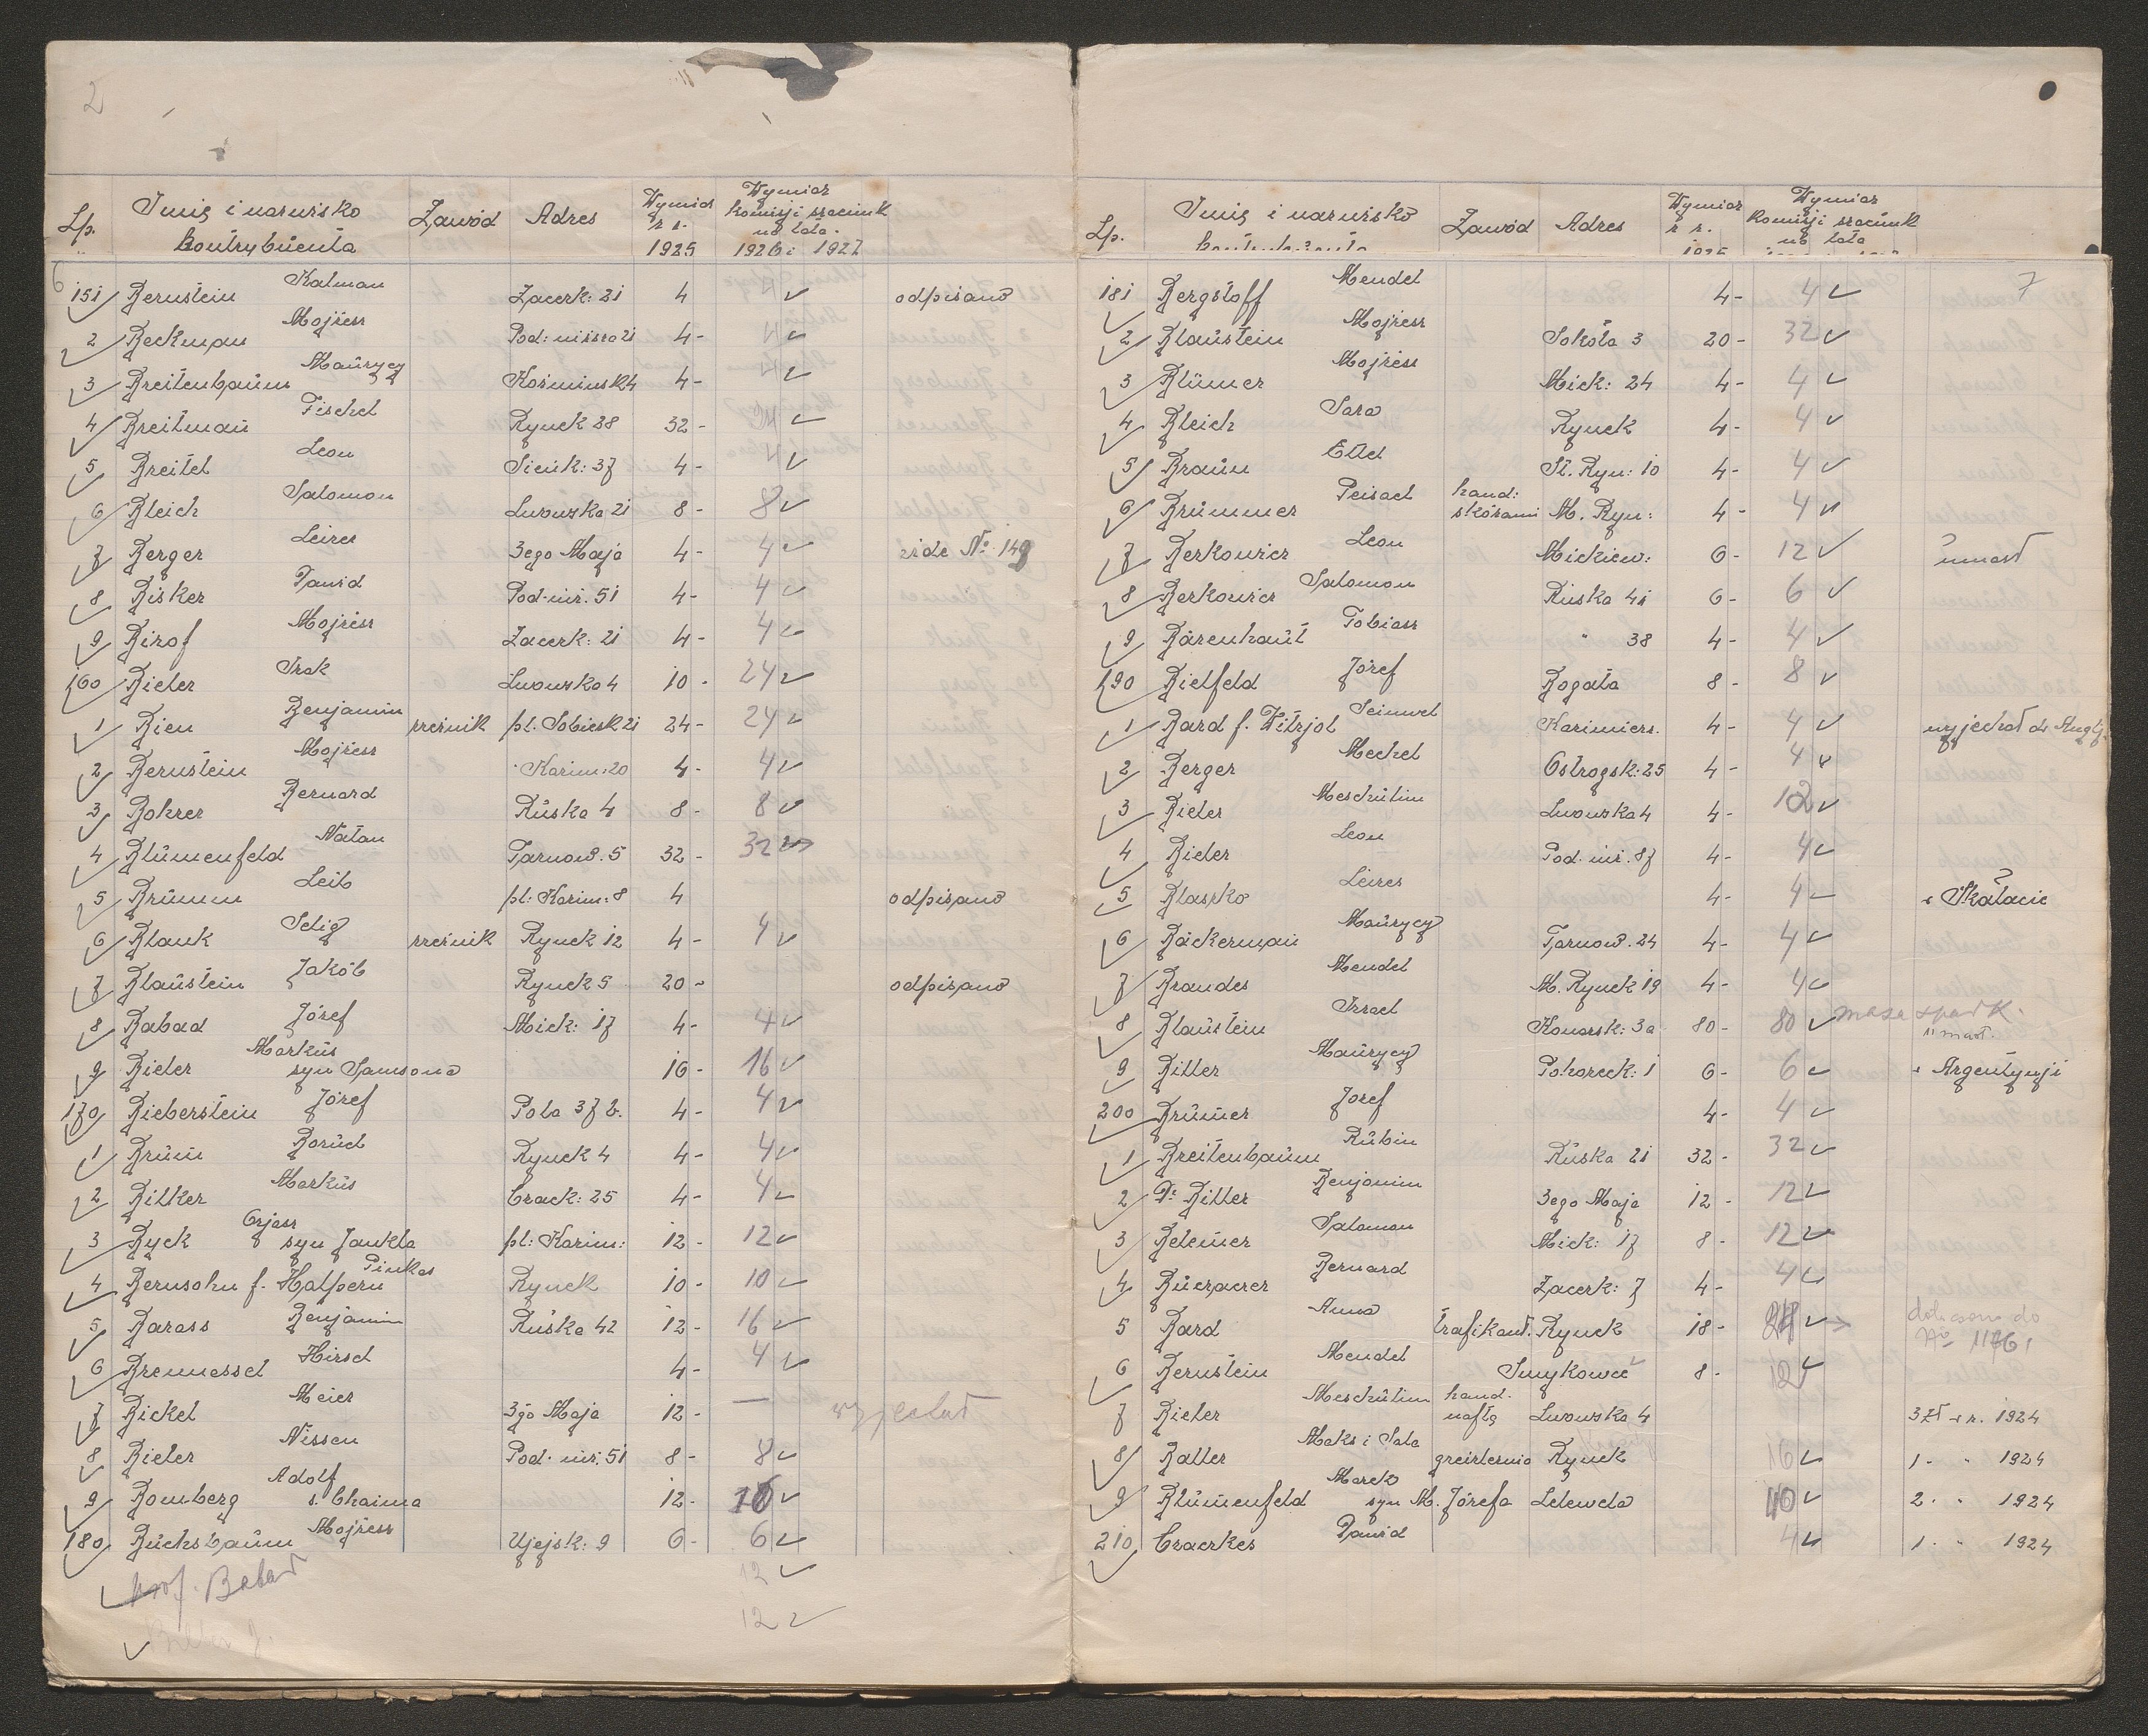 2
Lp. Imię i nazwisko kontrybuenta Zawód Adres Wymiar z r. 1925 Wymiar komisji szacunk na lata 1926 i 1927
6
151 Bernstein Kalman Zacerk: 21 4 4 odpisano
2 Beckman Mojżesz Pod: niższa 21 4- 4
3 Breitenbaum Maurycy Koźmińsk 4 4- 4
4 Breitman Fischel Rynek 28 32-
5 Breitel Leon Sienk: 37 4- 4
6 Bleich Salomon Lwowska 21 8- 8
7 Berger Leizer 3ego Maja 4- 4 vide No 149
8 Bisker Dawid Pod. niż. 51 4- 4
9 Birof Mojżesz Zacerk: 21 4- 4
160 Bieler Izak Lwowska 4 10- 24
1 Bien Benjamin rzeźnik pl. Sobiesk 21 24- 24
2 Bernstein Mojżesz Kazim: 20 4- 4
3 Bohrer Bernard Ruska 4 8- 8
4 Blumenfeld Natan Tarnow. 5 32- 32
5 Brumm Leib pl: Kazim: 8 4 odpisano
6 Blank Selig rzeźnik Rynek 12 4- 4
7 Blaustein Jakób Rynek 5 20- odpisano
8 Babad Józef Mick: 17 4- 4
9 Bieler Markus syn Samsona 16- 16
170 Bieberstein Józef Pola 37 b. 4- 4
1 Brum Boruch Rynek 4 4- 4
2 Bilker Markus Czack: 25 4- 4
3 Byck Ozjasz syn Jankla pl: Kazim: 12- 12
4 Bernsohn f. Halpern Pinkas Rynek 10- 10
5 Barass Benjamin Ruska 42 12- 16
6 Brennessel Hirsch 4- 4
7 Bickel Meier 3go Maja 12- — wyjechał
8 Bieler Nissen Pod. niż. 51 8- 8
9 Bomberg Adolf s. Chaima 12- 16
180 Buchsbaum Mojżesz Ujejsk: 9 6- 6
prof. Babad 12
12
Lp. Imię i nazwisko Zawód Adres Wymiar z r. Wymiar komisji szacunk na lata
7
181 Bergstoff Mendel 4- 4
2 Blaustein Mojżesz Sokoła 3 20- 32
3 Blumer Mojżesz Mick: 24 4- 4
4 Bleich Sara Rynek 4- 4
5 Braun Eliel St. Ryn: 10 4- 4
6 Brummer Peisach hand: skórami M. Ryn: 4- 4
7 Berkowicz Leon Mickiew: 6- 12 umarł
8 Berkowicz Salomon Ruska 41 6- 6
9 Bärenhaut Tobiasz " 38 4- 4
190 Bielfeld Józef Bogata 8- 8
1 Bard f. Witrjol Seinwel Kazimierz. 4- 4 wyjechał do Anglj.
2 Berger Mechel Ostrogsk: 25 4- 4
3 Bieler Meschulim Lwowska 4 4- 12
4 Bieler Leon Pod. niż. 87 4- 4
5 Blaszko Leizer 4- 4 w Skałacie
6 Bäckerman Maurycy Tarnow. 24 4- 4
7 Brandes Mendel M. Rynek 19 4- 4
8 Blaustein Izrael Konarsk: 3a 80- 80 masa spadk. umarł.
9 Biller Maurycy Pohoreck: 1 6- 6 w Argentynji
200 Brumer Józef 4- 4
1 Breitenbaum Rubin Ruska 21 32- 32
2 Dr Biller Benjamin 3ego Maja 12- 12
3 Belemer Salomon Mick: 17 8- 12
4 Buczaczer Bernard Zacerk: 7 4- 4
5 Bard Anna trafikant. Rynek 18- do No 1176
6 Bernstein Mendel Smykowce 8- 12
7 Bieler Meschulim hand. naftą Lwowska 4 3 zł z r. 1924
8 Baller Maks i Sala greislernia Rynek 16 1 - " 1924
9 Blumenfeld Marek syn M. Józefa Lelewela 40 2. " 1924
210 Czaczkes Dawid 4 1. " 1924